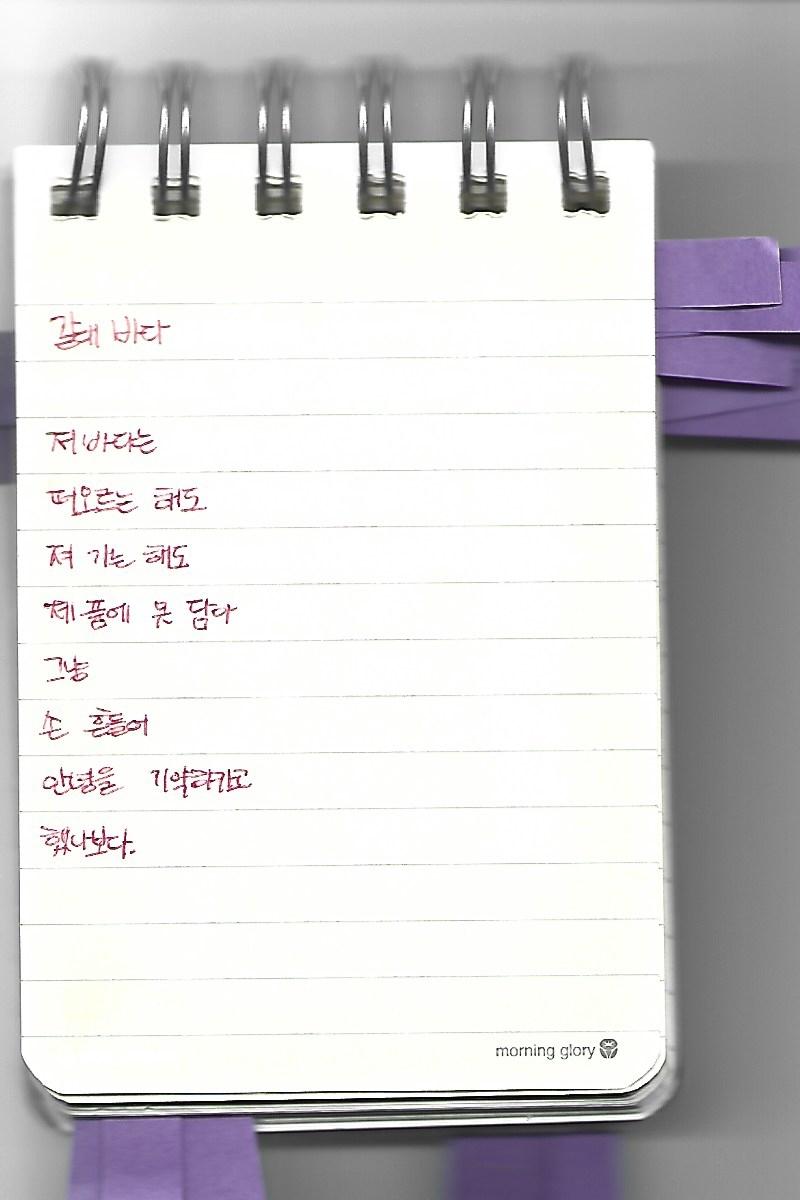 갈대 바다
저 바다는
떠오르는 해도
져 가는 해도
제 품에 못 담다
그냥
손 흔들어
안녕을 기약라가고
했나보다.
morning glory